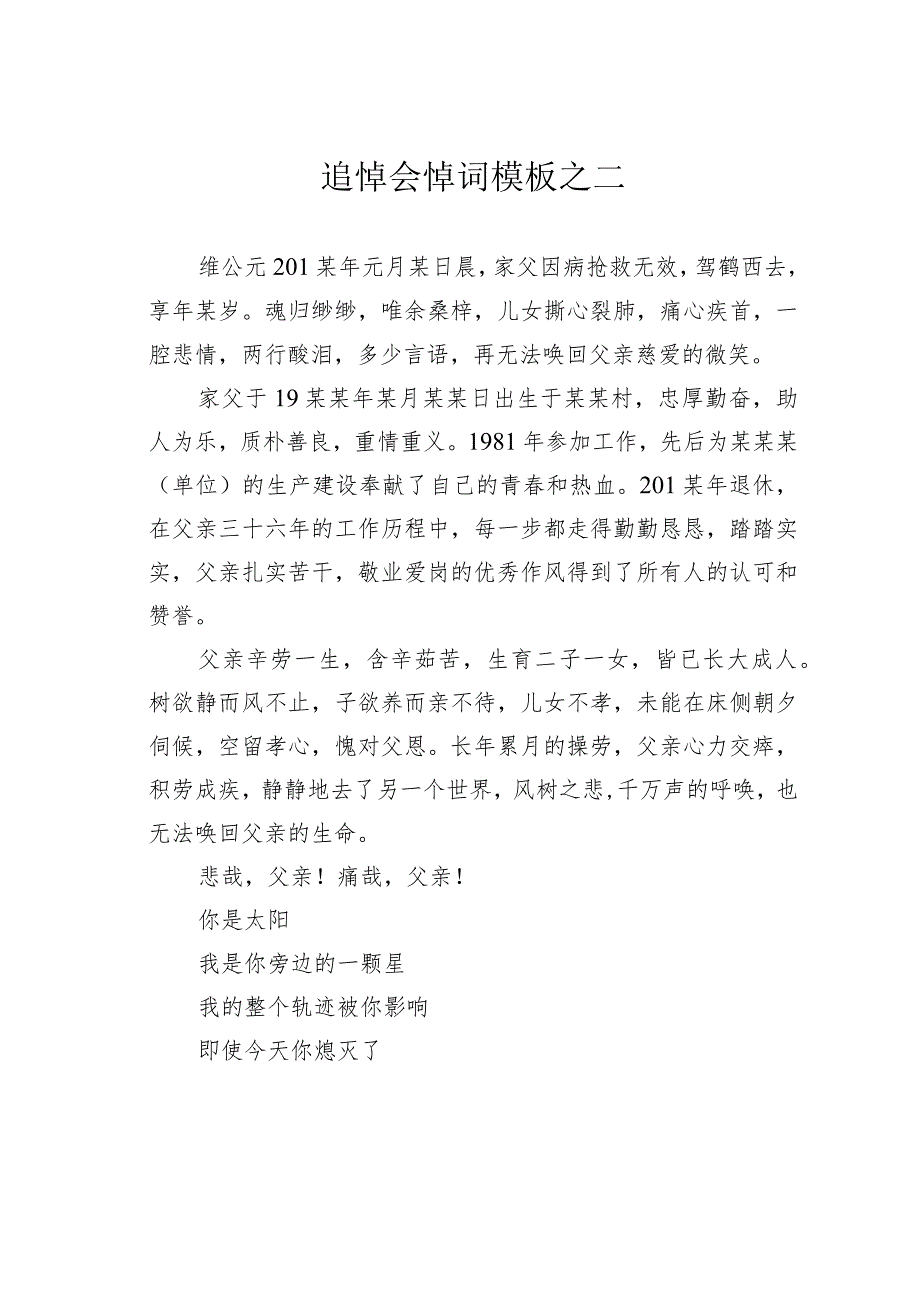 追悼会悼词模板之二
维公元 201 某年元月某日晨，家父因病抢救无效，驾鹤西去，
享年某岁。魂归缈缈，唯余桑梓，儿女撕心裂肺，痛心疾首，一
腔悲情，两行酸泪，多少言语，再无法唤回父亲慈爱的微笑。
家父于 19 某某年某月某某日出生于某某村，忠厚勤奋，助
人为乐，质朴善良，重情重义。1981 年参加工作，先后为某某某
（单位）的生产建设奉献了自己的青春和热血。201 某年退休，
在父亲三十六年的工作历程中，每一步都走得勤勤恳恳，踏踏实
实，父亲扎实苦干，敬业爱岗的优秀作风得到了所有人的认可和
赞誉。
父亲辛劳一生，含辛茹苦，生育二子一女，皆已长大成人。
树欲静而风不止，子欲养而亲不待，儿女不孝，未能在床侧朝夕
伺候，空留孝心，愧对父恩。长年累月的操劳，父亲心力交瘁，
积劳成疾，静静地去了另一个世界，风树之悲,千万声的呼唤，也
无法唤回父亲的生命。
悲哉，父亲！痛哉，父亲！
你是太阳
我是你旁边的一颗星
我的整个轨迹被你影响
即使今天你熄灭了